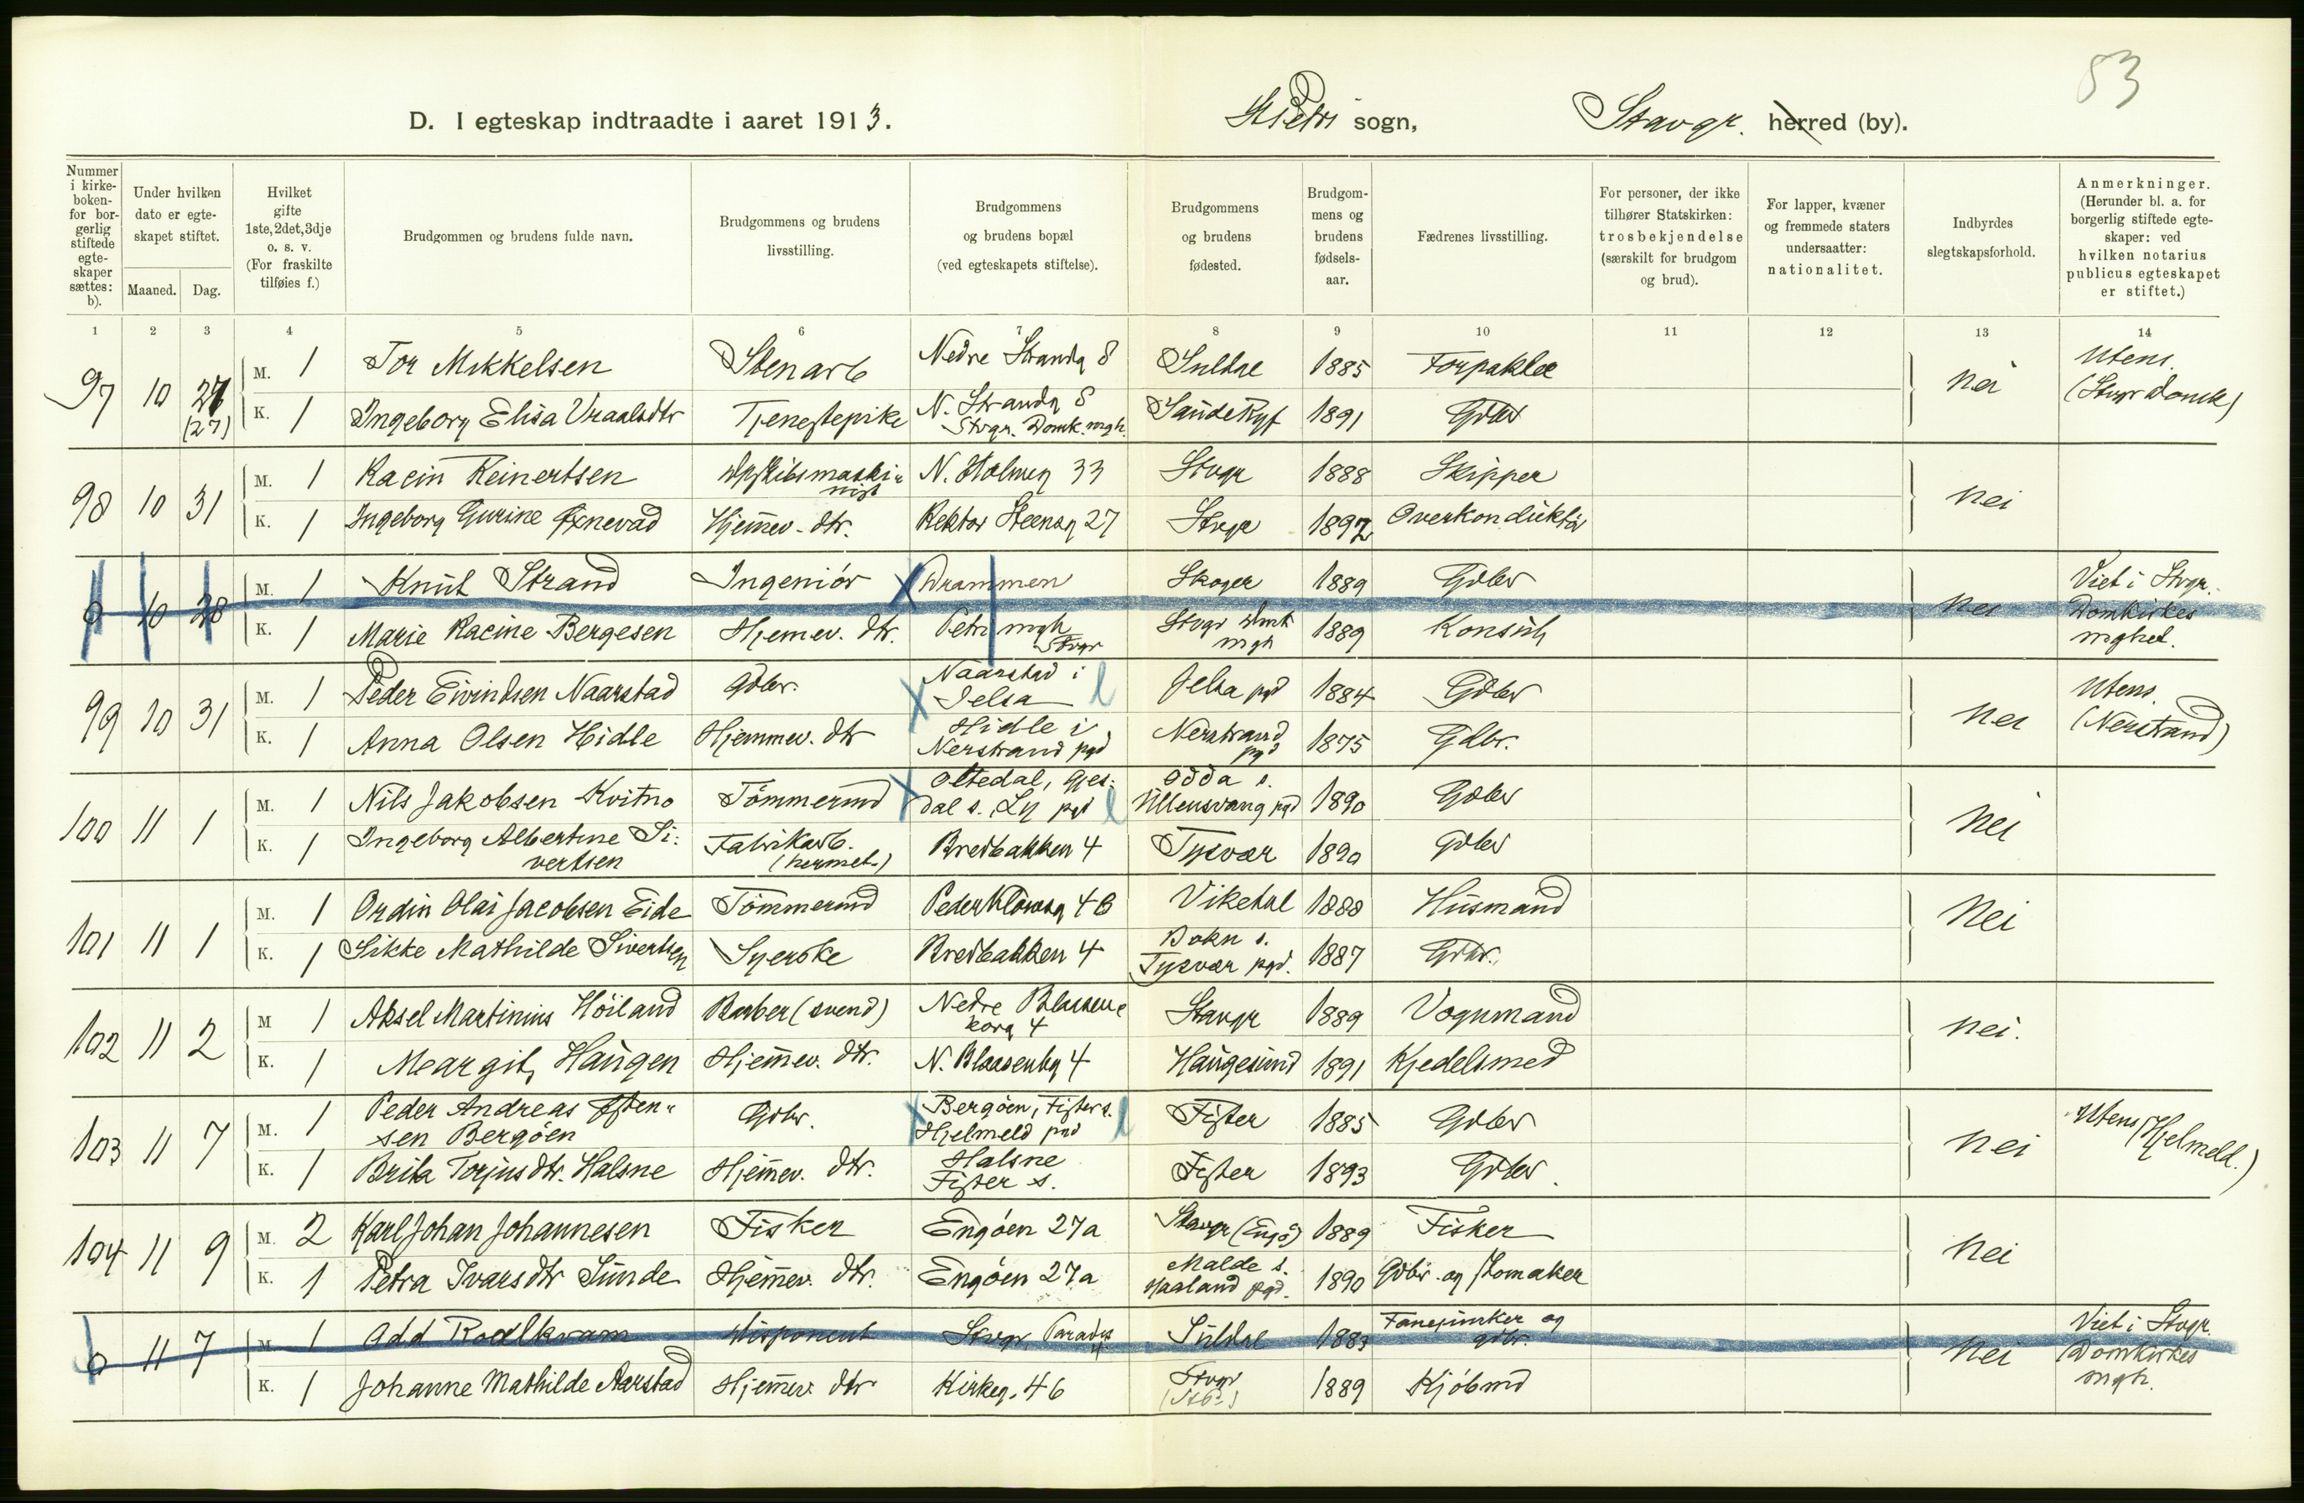 83
D. I egteskap indtraadte i aaret 1913. St Petri sogn, Stavgr. herred (by).
Nummer i kirkeboken- for borgerlig stiftede egteskaper sættes: b).
Under hvilken dato er egteskapet stiftet.
Maaned. Dag.
Hvilket gifte 1ste, 2det, 3dje o. s. v. (For fraskilte tilføies f.)
Brudgommen og brudens fulde navn.
Brudgommens og brudens livsstilling.
Brudgommens og brudens bopæl (ved egteskapets stiftelse).
Brudgommens og brudens fødested.
Brudgommens og brudens fødselsaar.
Fædrenes livsstilling.
For personer, der ikke tilhører Statskirken: trosbekjendelse (særskilt for brudgom og brud).
For lapper, kvæner og fremmede staters undersaatter: nationalitet.
Indbyrdes slegtskapsforhold.
Anmerkninger. (Herunder bl. a. for borgerlig stiftede egteskaper: ved hvilken notarius publicus egteskapet er stiftet.)
1 2 3 4 5 6 7 8 9 10 11 12 13 14
97 10 27 (27) M. 1 Tor Mikkelsen Stenarb Nedre Strandg 8 Suldal 1885 Forpakter nei Utens. (Stvgr Domk)
K. 1 Ingeborg Elisa Vraalsdtr Tjenestepike N. Strandg 8 Stvgr. Domk. mgh. Saude Ryf 1891 Gdbr
98 10 31 M. 1 Racin Reinertsen Dpskibsmaskinist N. Holmeg 33 Stvgr 1888 Skipper nei
K. 1 Ingeborg Gurine Øxnevad Hjemmev. dtr. Rektor Steensg 27 Stvgr 1892 Overkonduktör
0 10 28 M. 1 Knut Strand Ingeniör Drammen Skoger 1889 Gdbr nei Viet i Stvgr. Domkirkes mghet.
K. 1 Marie Racine Bergesen Hjemmev. dtr. Petri mgh Stvgr Stvgr Domk mgh 1889 Konsul
99 10 31 M. 1 Peder Eivindsen Naarstad Gdbr. Naarstad i Jelsa l Jelsa pgd 1884 Gdbr nei Utens. (Nerstrand)
K. 1 Anna Olsen Hidle Hjemmev. dtr Hidle i Nerstrand pgd Nerstrand pgd 1875 Gdbr.
100 11 1 M. 1 Nils Jakobsen Kvitno Tömmermd Oltedal, Gjesdal s. Ly pgd l Odda s. Ullensvang pgd 1890 Gdbr Nei
K. 1 Ingeborg Albertine Sivertsen Fabrikarb. (hermet.) Bredbakken 4 Tysvær 1890 Gdbr
101 11 1 M. 1 Ordin Olai Jacobsen Eide Tömmermd Peder Klowsg 4 B Vikedal 1888 Husmand Nei
K. 1 Sikke Mathilde Sivertsen Syerske Bredbakken 4 Bokn s. Tysvær pgd. 1887 Gdbr.
102 11 2 M 1 Aksel Martinius Höiland Barber (svend) Nedre Blaasenborg 4 Stavgr 1889 Vognmand nei.
K. 1 Meargit Haugen Hjemmev. dtr. N. Blaasenbg 4 Haugesund 1891 Kjedelsmed
103 11 7 M. 1 Peder Andreas Østensen Bergöen Gdbr. Bergöen, Fister s. Hjelmeld pgd l Fister 1885 Gdbr nei Utens (Hjelmeld.)
K. 1 Brita Torjusdtr. Halsne Hjemmev. dtr. Halsne Fister s. Fister 1893 Gdbr.
104 11 9 M. 2 Karl Johan Johannesen Fisker Engöen 27a Stavgr (Engö) 1889 Fisker Nei
K. 1 Petra Ivarsdtr Sunde Hjemmev. dtr. Engöen 27.a Malde s. Haaland pgd. 1890 Gdbr. og skomaker
0 11 7 M 1 Odd Roalkvam Disponent Stvgr, Paradis Suldal 1883 Fanejunker og gdbr. nei Viet i Stvgr. Domkirkes mgh.
K. 1 Johanne Mathilde Aarstad Hjemmev dtr Kirkeg. 46 Stvgr 1889 Kjöbmd